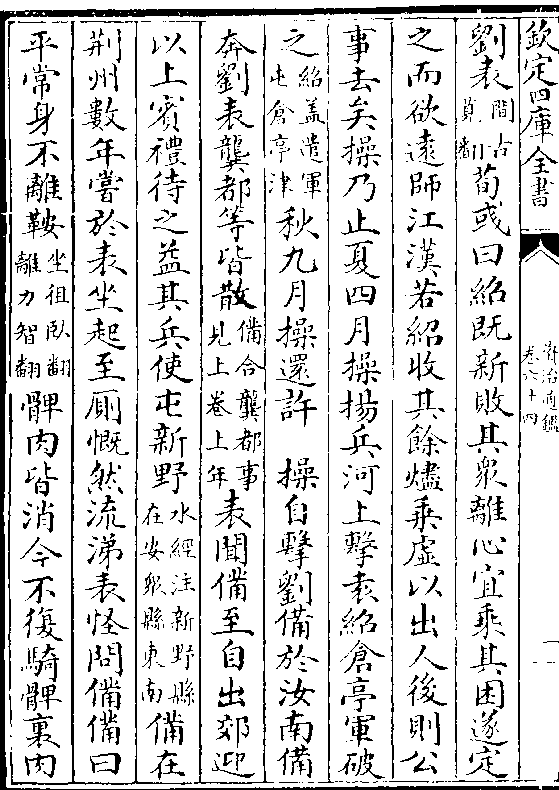 欽定四庫全書
資治通鑑
卷六十四
二
劉表間古莧翻荀彧曰紹既新敗其衆離心宜乘其困遂定
之而欲遠師江漢若紹收其餘燼乘虛以出人後則公
事去矣操乃止夏四月操揚兵河上擊袁紹倉亭軍破
之紹盖遣軍屯倉亭津秋九月操還許　操自擊劉備於汝南備
奔劉表龔都等皆散備合龔都事見上卷上年表聞備至自出郊迎
以上賓禮待之益其兵使屯新野水經注新野縣在安衆縣東南備在
荆州數年嘗於表坐起至厠慨然流涕表怪問備備曰
平常身不離鞍坐徂臥翻離力智翻髀肉皆消今不復騎髀裏肉